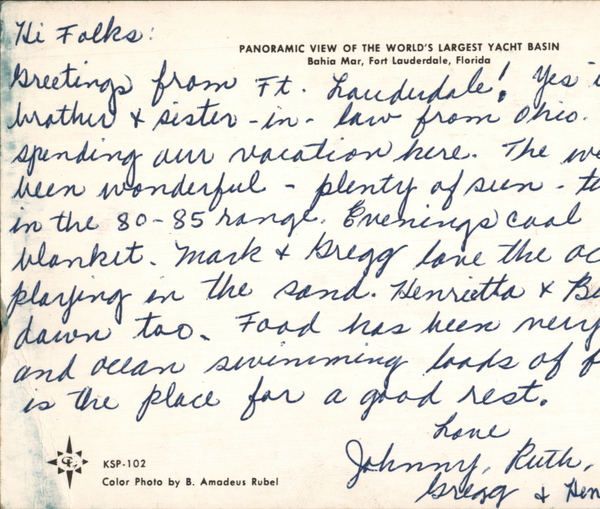 Hi Folks:
PANORAMIC VIEW OF THE WORLD'S LARGEST YACHT BASIN
Bahia Mar, Fort Lauderdale, Florida
Greetings from Ft. Lauderdale! Yes
brother & sister-in-law from Ohio.
spending our vacation here. The
been wonderful - plenty of sun -
in the 80-85 range. Evenings cool
blanket. Mark & Gregg love the
playing in the sand. Henrietta &
down too. Food has been very
and ocean swimming loads of
is the place for a good rest.
Love
Johnny, Ruth,
Gregg &
KSP-102
Color Photo by B. Amadeus Rubel